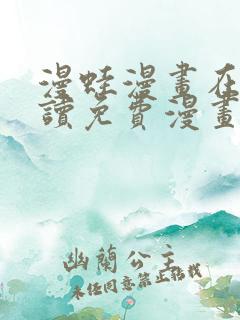 漫蛙漫畫在
讀免費漫畫
幽蘭公主
未经同意禁止转载